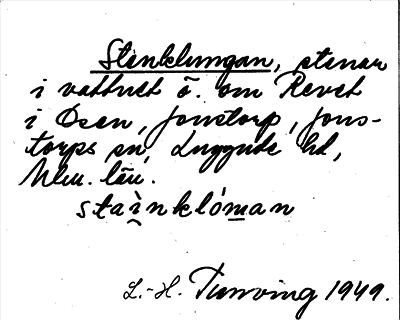 Stenklungan, stenar
i vattnet ö. om Revet
i Ösen, Jonstorp, Jons-
torps sn, Luggude hd,
Mlm. län.
staìnklóman
L.-H. Tunving 1949.